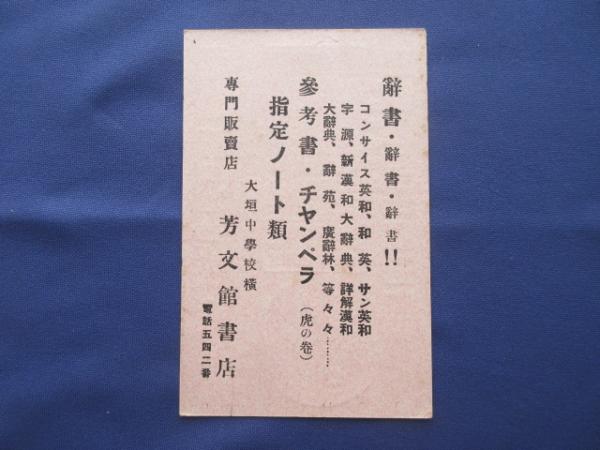 辭書・辭書・辭書!!
コンサイス英和、和英、サン英和
字源、新漢和大辭典、詳解漢和
大辭典、辭苑、廣辭林、等々々………
參考書・チヤンペラ(虎の卷)
指定ノート類
大垣中學校橫
專門販賣店 芳文館書店
電話五四二番